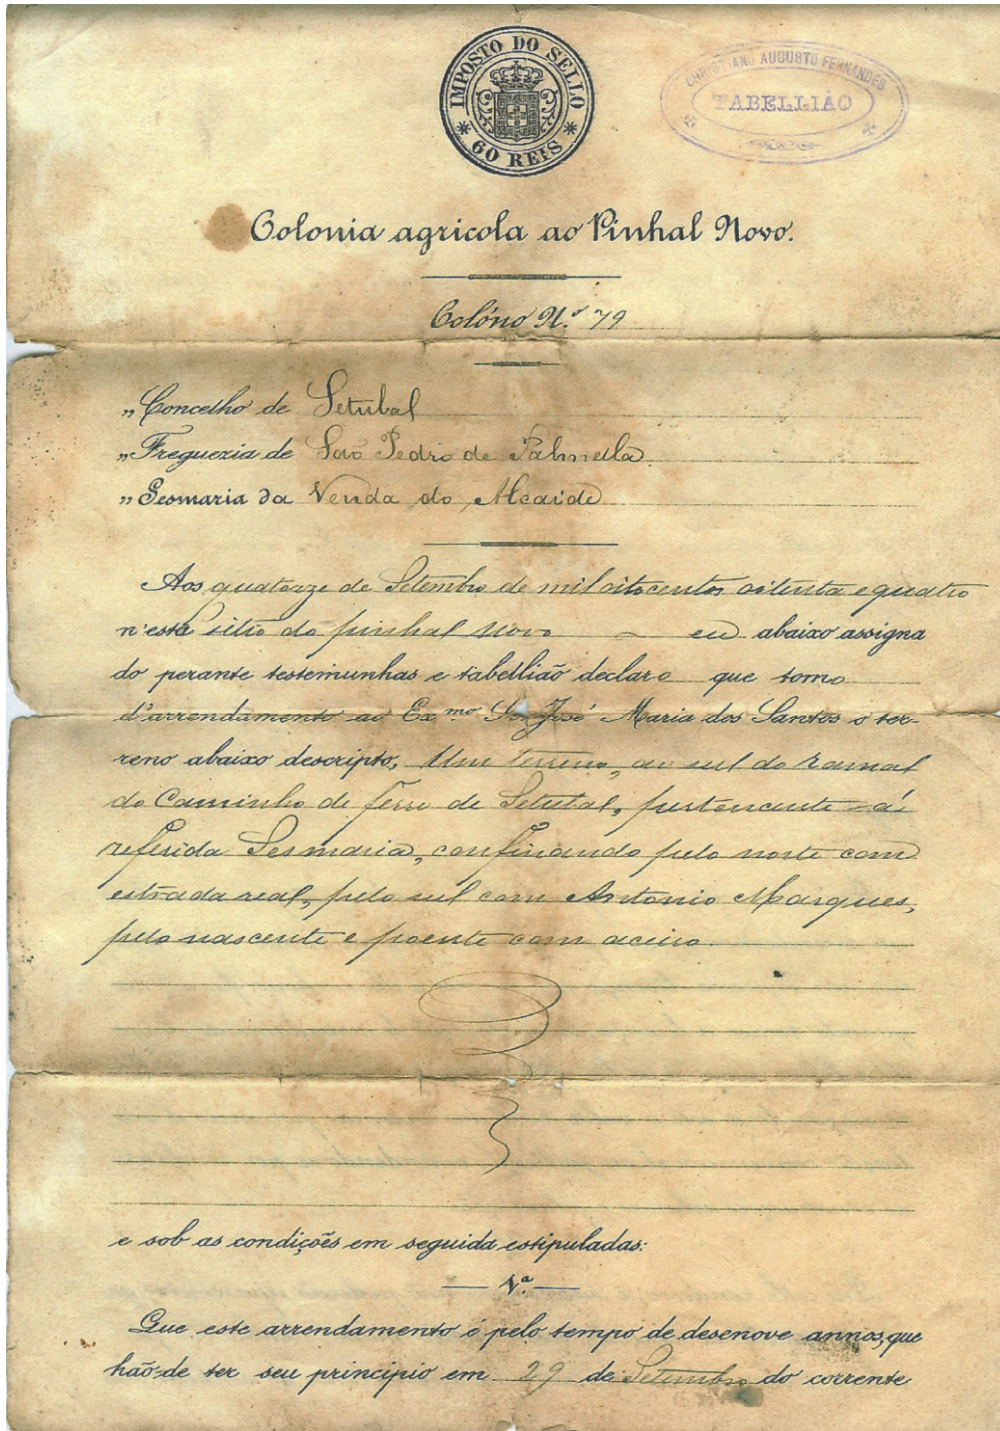 IMPOSTO DO SELLO
* 60 REIS *
CHRISTIANO AUGUSTO FERNANDES
TABELLIÃO
Colonia agricola ao Pinhal Novo.
Colóno N.º 79
„Concelho de Setubal
„Freguezia de São Pedro de Palmella.
„Sesmaria da Venda do Alcaide
Aos quatorze de Setembro de mil oitocentos oitenta e quatro
n'este sitio do pinhal novo eu abaixo assigna
do perante testemunhas e tabellião declaro que tomo
d'arrendamento ao Ex.mo Sr. José Maria dos Santos o ter-
reno abaixo descripto, Um terreno, ao sul do ramal
do Caminho de ferro de Setubal, pertencente á
referida Sesmaria, confinando pelo norte com
estrada real, pelo sul com Antonio Marques,
pelo nascente e poente com aceiro.
e sob as condições em seguida estipuladas:
— 1.ª —
Que este arrendamento é pelo tempo de desenove annos, que
hão-de ter seu principio em 29 de Setembro do corrente